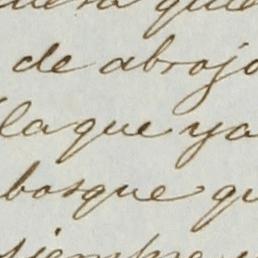 de abrojo
la que ya
bosque qu
siempre